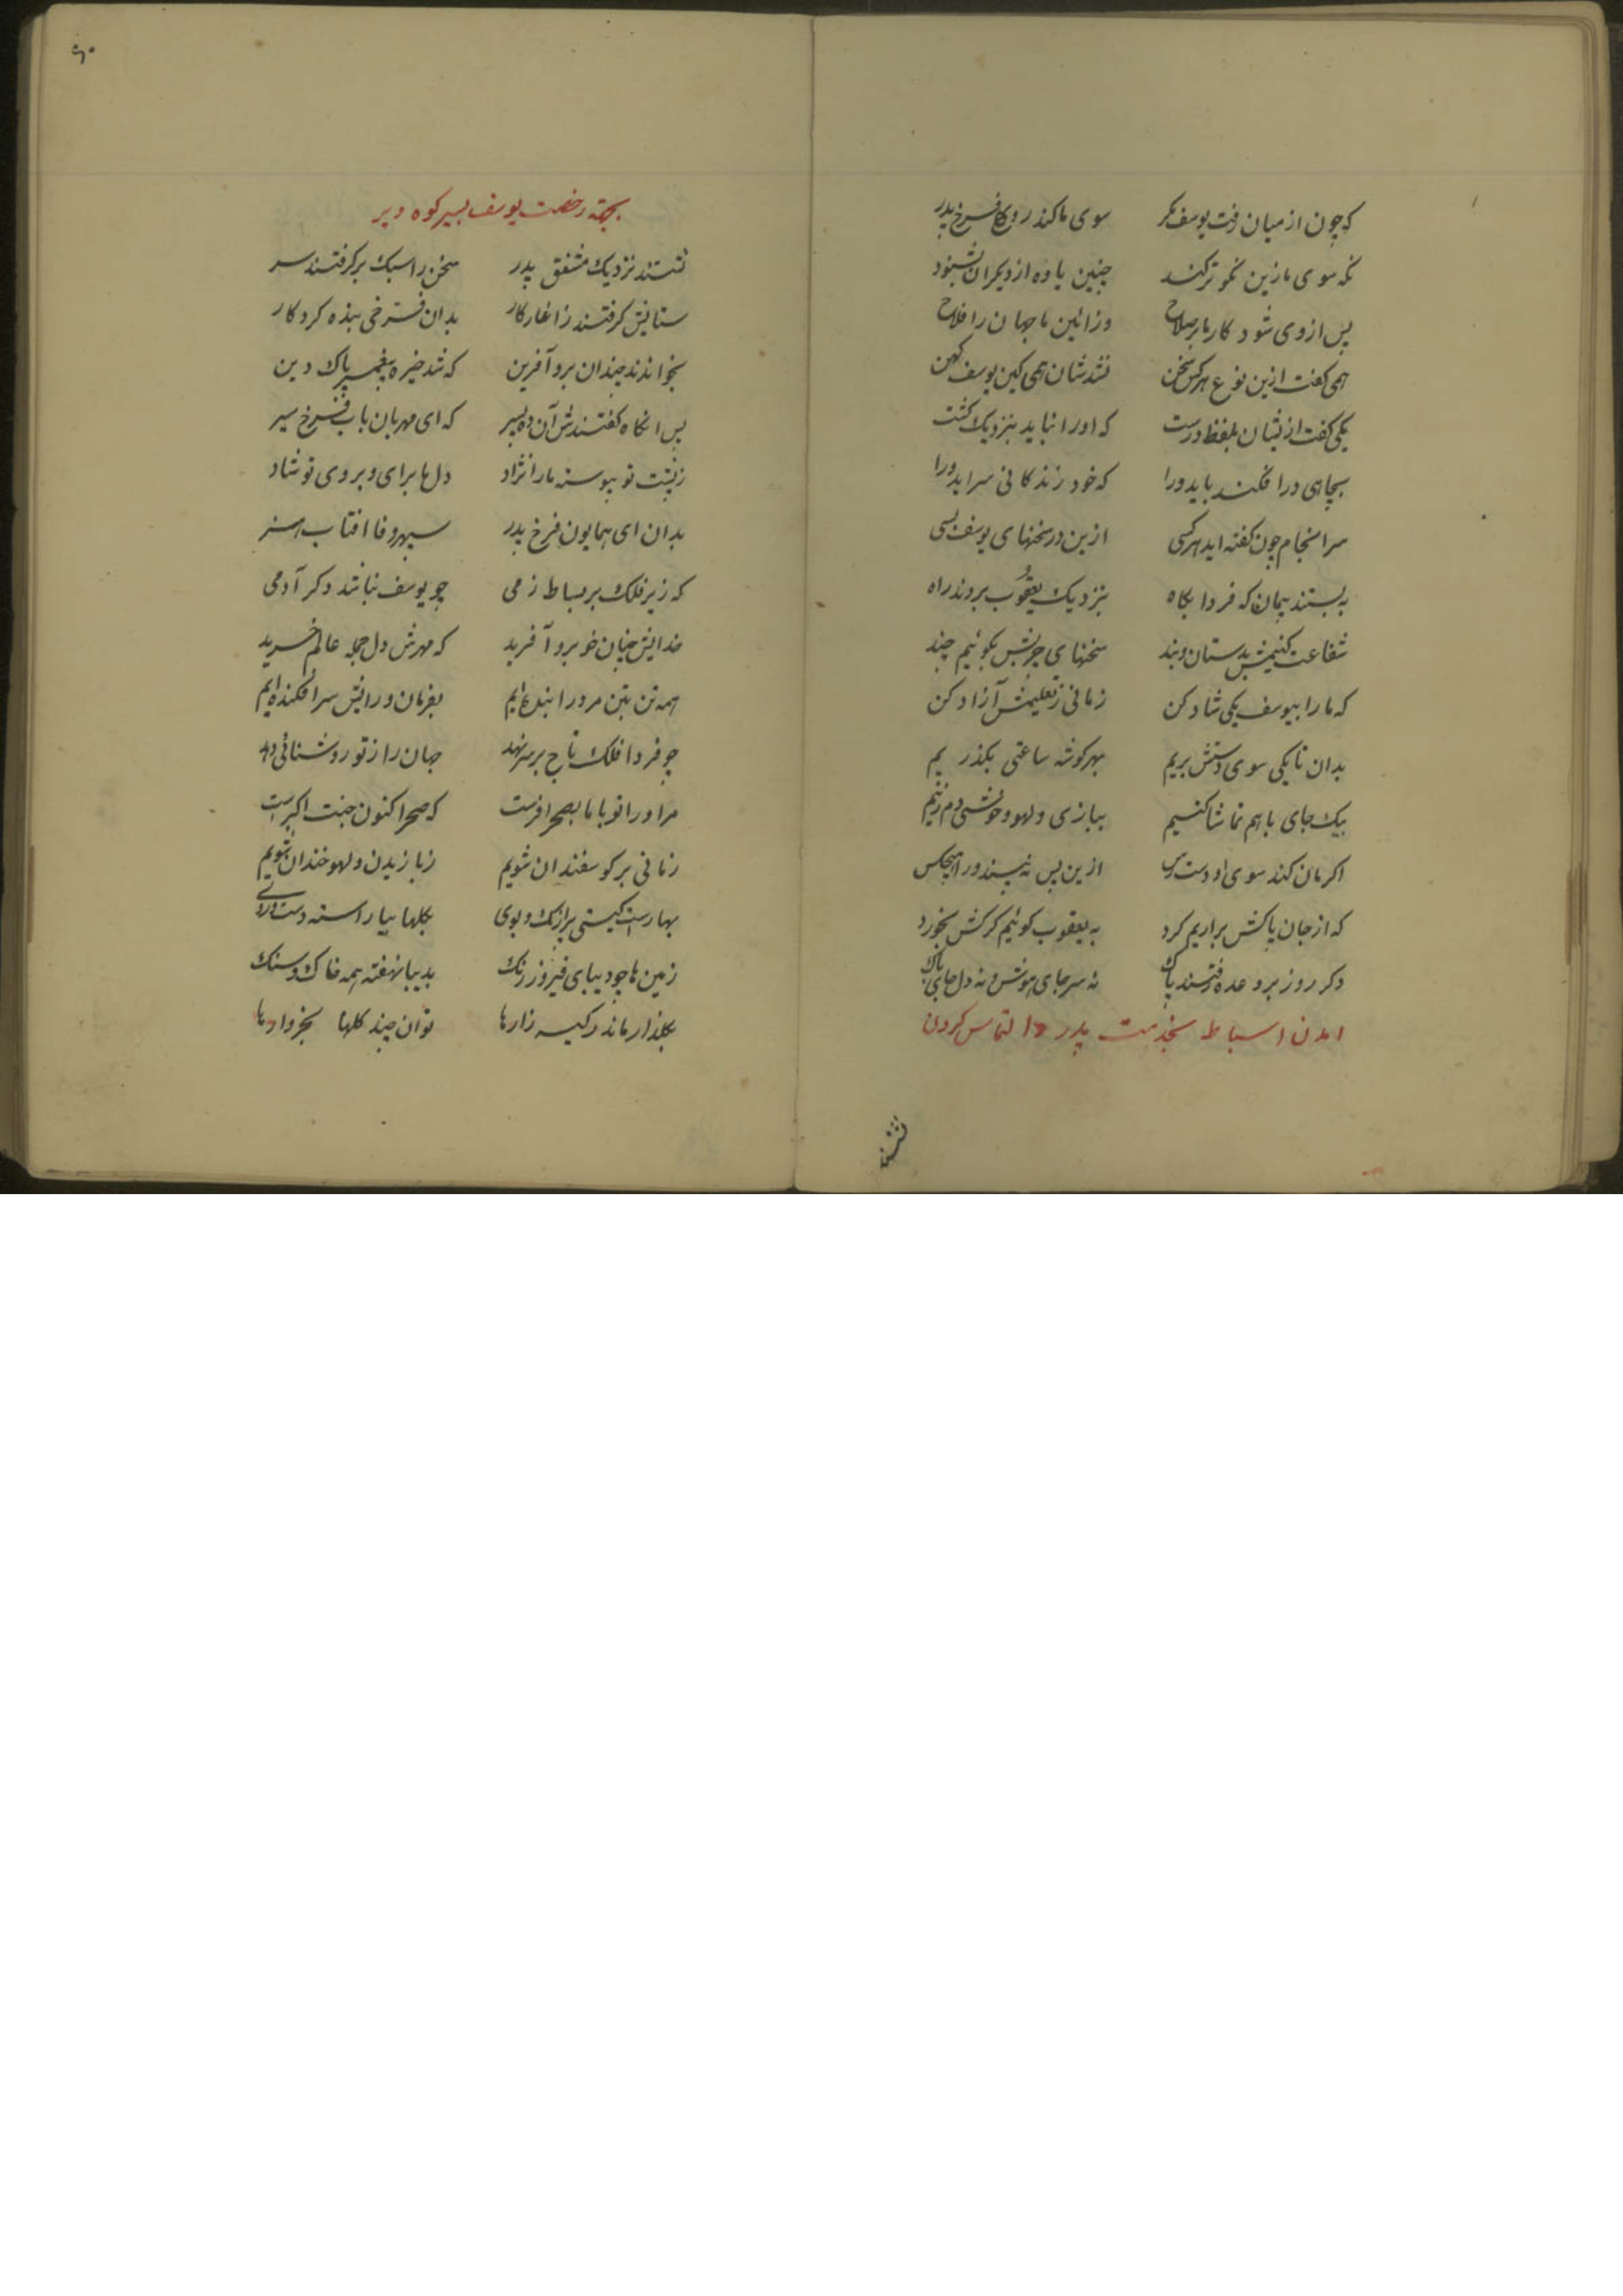 که چون از میان رفت یوسف مگر سوی ما کند روی فرخ پدر
نکه سوی ما زین نکوتر کند چنین یاوه از دیکران نشنود
پس از وی شود کار ما بر صلاح وزائین ما جهان را فلاح
همی کفت ازین نوع هرکس سخن نشد شان همی کین یوسف کهن
یکی کفت ازیشان بلفظ درست که اورا نباید بنزدیک کشت
بچاهی درافکند باید ورا که خود زندکانی سراید ورا
سرانجام چون کفته اید هرکسی ازین در سخنهای یوسف بسی
به بستند پیمان که فردا بکاه بنزدیک یعقوب بروند راه
شفاعت کنیمش بدستان و بند سخنهای چربش بکوئیم چند
که مارا بیوسف یکی شاد کن زمانی ز تعلیمش آزاد کن
بدان تا یکی سوی دشتش بریم بهر کوشه ساعتی بکذریم
بیک جای باهم تماشا کنیم ببازی و لهو و خوشی دم زنیم
اکرمان کند سوی او دست رس ازین پس نه بیند ورا هیچکس
که از جان پاکش براریم کرد به یعقوب کوئیم کرکش بخورد
دکر روز بر وعده رفتند پاک نه سر جای هوش و نه دل جای باک
امدن اسباط بخدمت پدر و التماس کردن
نشستند
۶۰
بجهته رخصت یوسف بسیر کوه و بر
نشستند نزدیک مشفق پدر سخن را سبک برکرفتند سر
ستایش کرفتند زاغاز کار بدان فرخی بنده کردکار
بخواندند چندان برو آفرین که شد خیره پیغمبر پاک دین
پس انکاه کفتندش آن ده پسر که ای مهربان باب فرخ سیر
ز پشت تو پیوسته مارا نژاد دل ما برای و بروی تو شاد
بدان ای همایون فرخ پدر سپهر وفا افتاب هنر
که زیر فلک بر بساط زمی چو یوسف نباشد دکر آدمی
خدایش چنان خوبرو آفرید که مهرش دل جمله عالم خرید
همه تن بتن مر ورا بنده ایم بفرمان و رایش سرافکنده ایم
چو فردا فلک تاج بر سر نهد جهان را ز نو روشنائی دهد
مر اورا تو با ما بصحرا فرست که صحرا کنون جنت اکبرست
زمانی بر کوسفندان شویم ز بازیدن و لهو خندان شویم
بهارست کیتی پر از رنک و بوی بکلها بیاراسته دشت و روی
زمین ها چو دیبای فیروز رنک بدیبا نهفته همه خاک و سنک
بکلذار ماند رکیه زارها توان چید کلها بخروارها